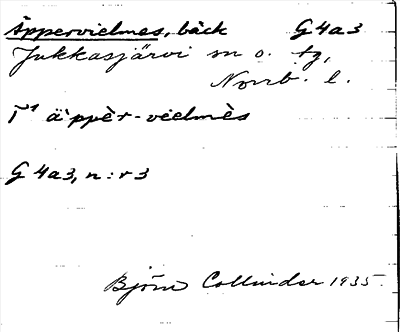 Äppervielmes, bäck G4a3
Jukkasjärvi sn o. tg,
Norrb. l.
äppèr-vielmès
G 4a3, n:r 3
Björn Collinder 1935.